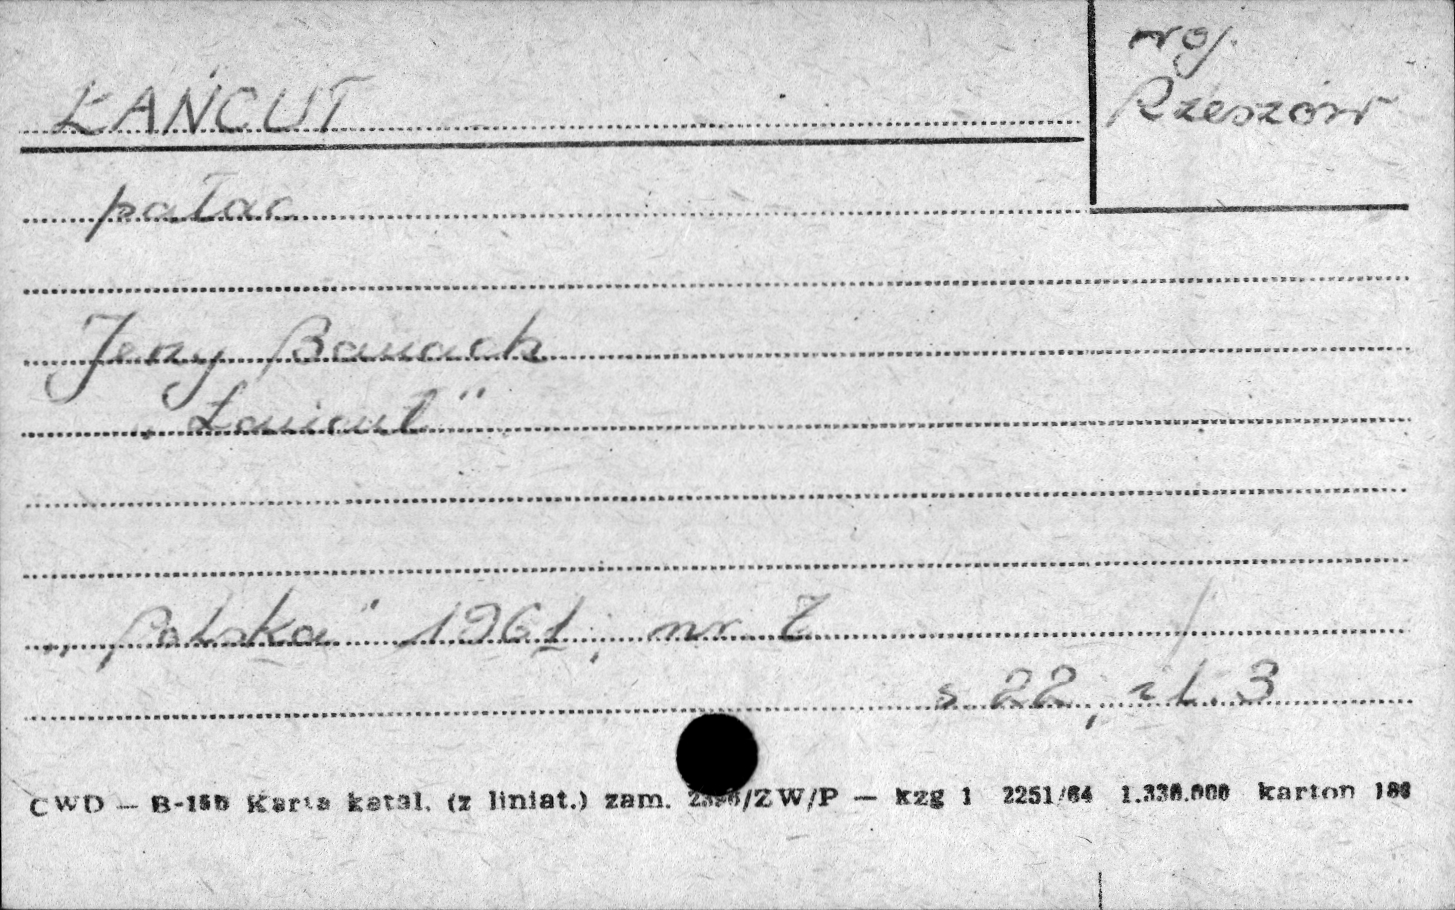 woj.
Rzeszów
ŁAŃCUT
pałac
Jerzy Banach
„Łańcut"
„Polska" 1961, nr 7
s 22, il. 3
CWD — B-15b Karta katal. (z liniat.) zam. /ZW/P — kzg 1 2251/64 1.330.000 karton